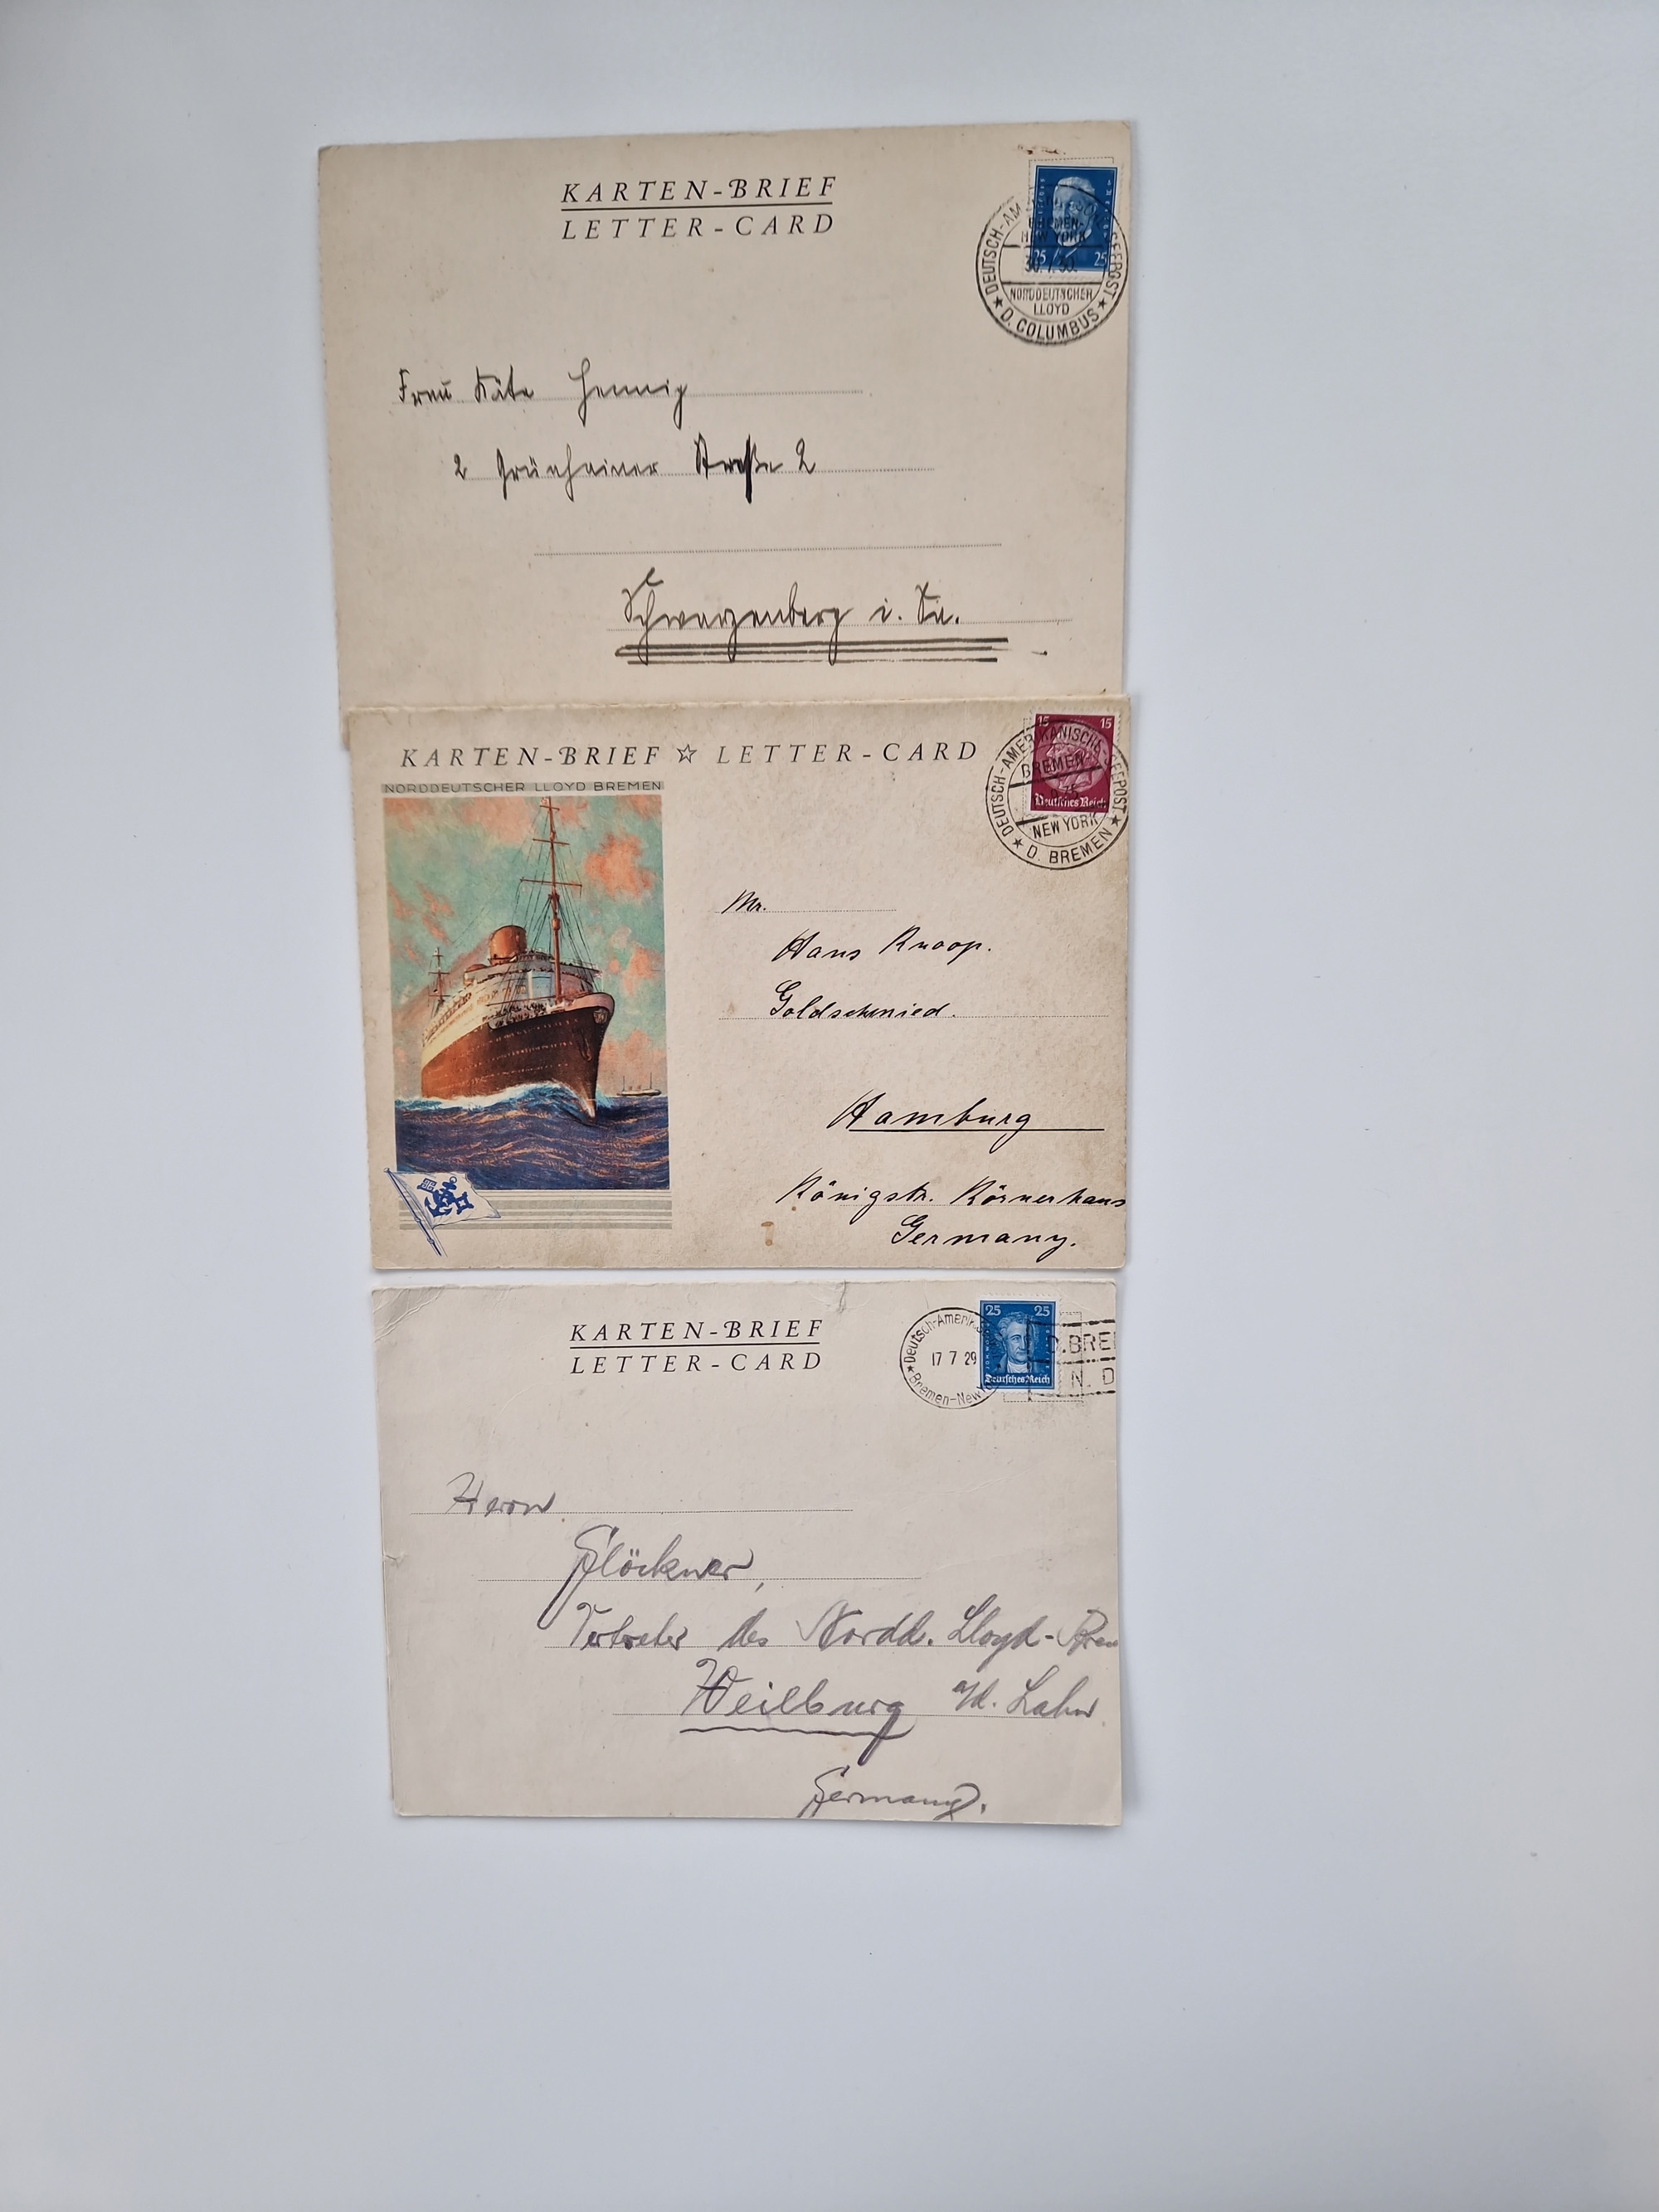 KARTEN-BRIEF
LETTER-CARD
25 25
DEUTSCH-AM SEEPOST
BREMEN-
NEW YORK
30.7.30.
NORDDEUTSCHER
LLOYD
★ D. COLUMBUS ★
Frau Käte Hennig
2 Grünhainer Straße 2
Schwarzenberg i. Sa.
KARTEN-BRIEF ☆ LETTER-CARD
NORDDEUTSCHER LLOYD BREMEN
15 15
Deutsches Reich
DEUTSCH-AMERIKANISCHE SEEPOST
BREMEN-
NEW YORK
★ D. BREMEN ★
Mr.
Hans Knoop.
Goldschmied.
Hamburg
Königstr. Körnerhaus
Germany.
KARTEN-BRIEF
LETTER-CARD
25 25
Deutsches Reich
Deutsch-Amerik
17 7 29
Bremen-New
D.BRE
N. D
Herrn
Glöckner,
Vertreter des Nordd. Lloyd-Brem
Weilburg a/d. Lahn
Germany.